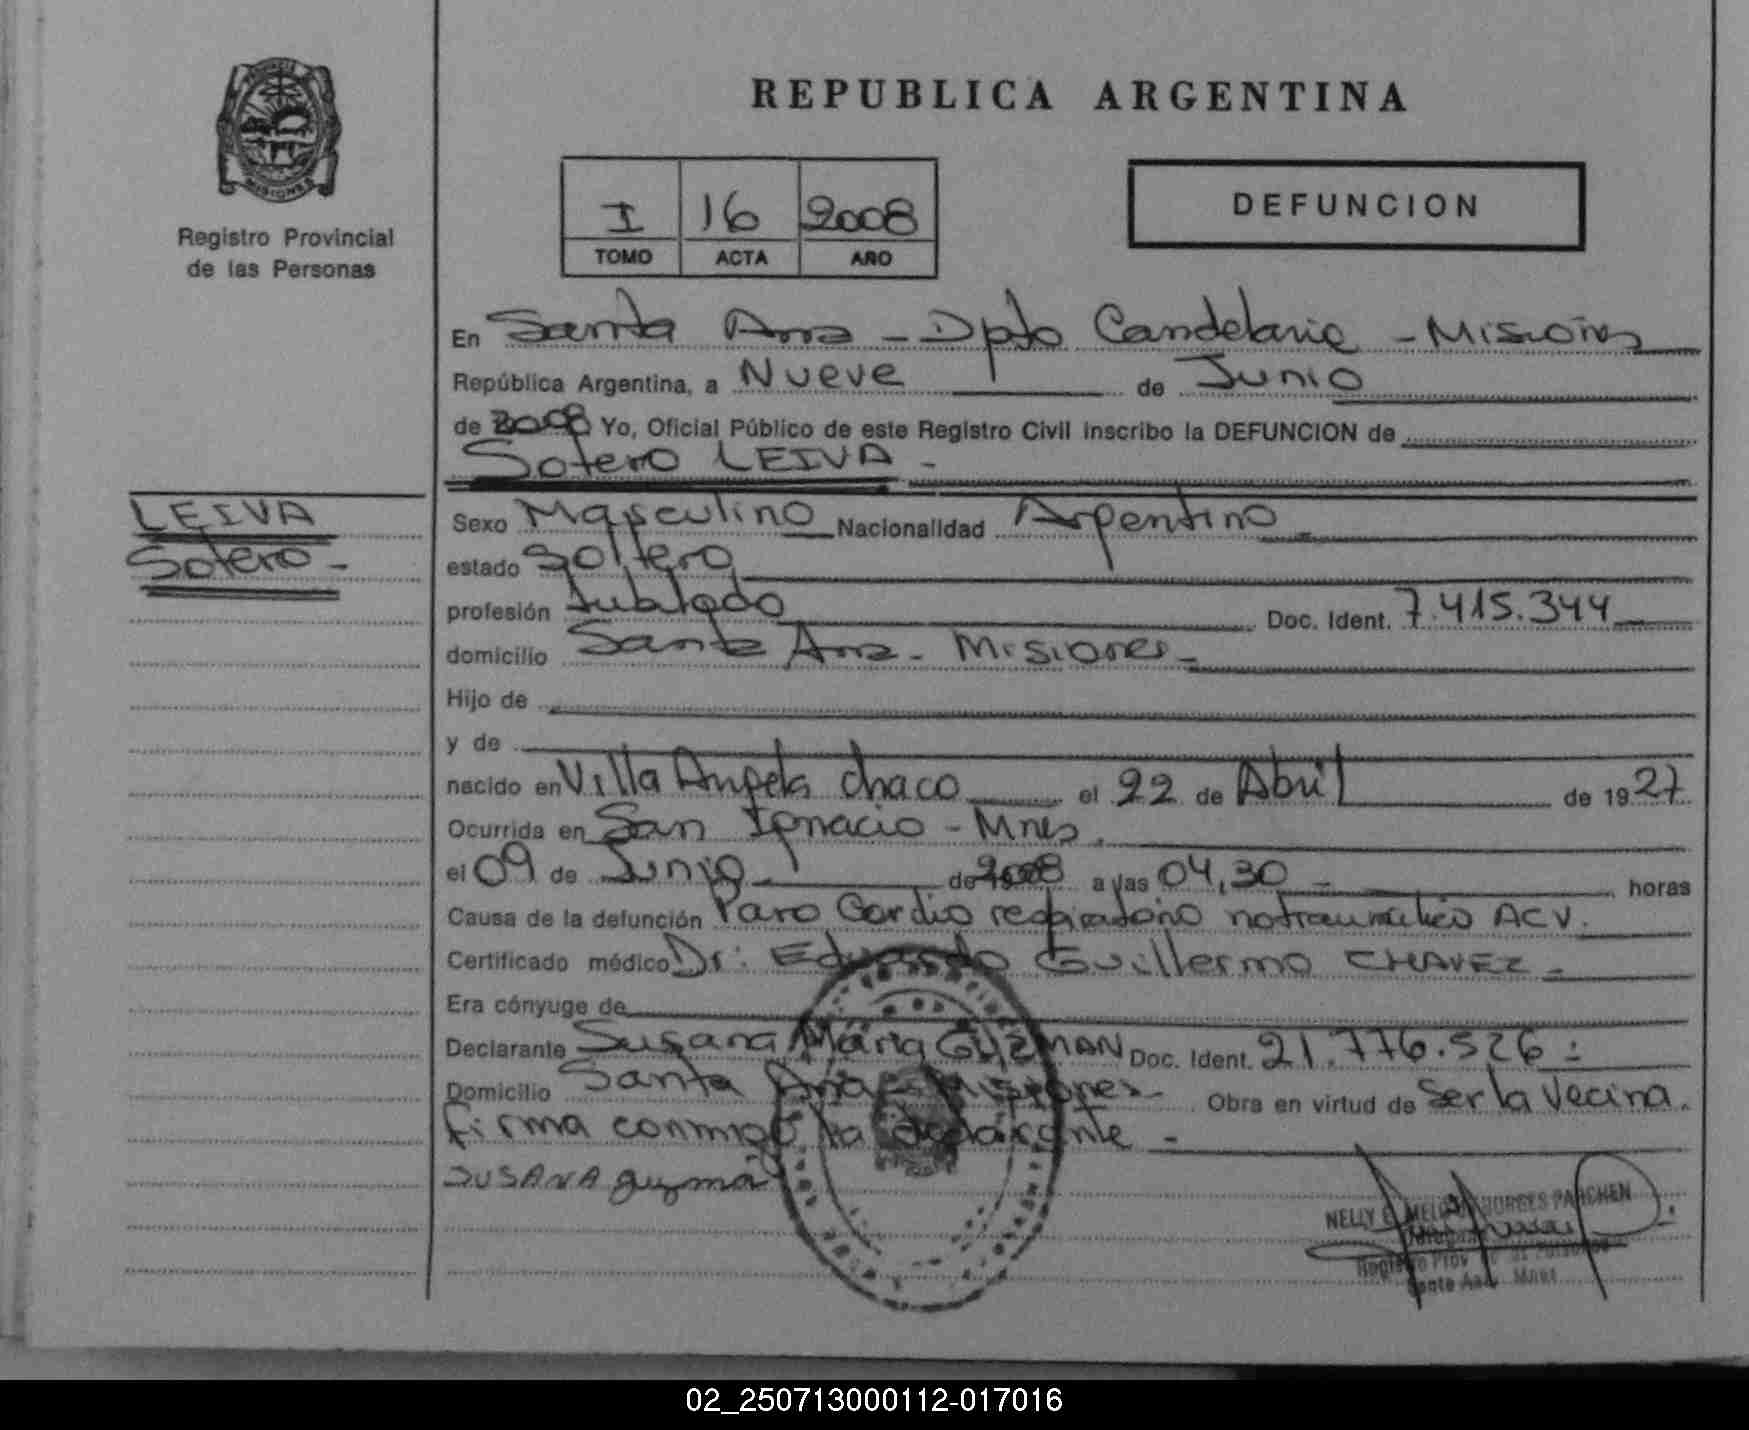 REPUBLICA ARGENTINA
PROVINCIA
MISIONES
Registro Provincial
de las Personas
I 16 2008
TOMO ACTA AÑO
DEFUNCION
En Santa Ana - Dpto Candelaria - Misiones
República Argentina, a Nueve de Junio
de 2008 Yo, Oficial Público de este Registro Civil inscribo la DEFUNCION de
Sotero LEIVA -
LEIVA
Sotero -
Sexo Masculino Nacionalidad Argentino
estado Soltero
profesión Jubilado Doc. Ident. 7.415.344
domicilio Santa Ana - Misiones -
Hijo de
y de
nacido en Villa Angela Chaco el 22 de Abril de 1927
Ocurrida en San Ignacio - Mnes.
el 09 de Junio de 2008 a las 04,30 - horas
Causa de la defunción Paro Cardio respiratorio no traumatico ACV.
Certificado médico Dr: Eduardo Guillermo CHAVEZ -
Era cónyuge de
Declarante Susana Maria GUZMAN Doc. Ident. 21.776.526 :
Domicilio Santa Ana - Misiones - Obra en virtud de Ser la Vecina.
firma conmigo la declarante -
SUSANA guzman
NELLY BORGES PARCHEN
Registro Prov de las Personas
Santa Ana Mnes
02_250713000112-017016